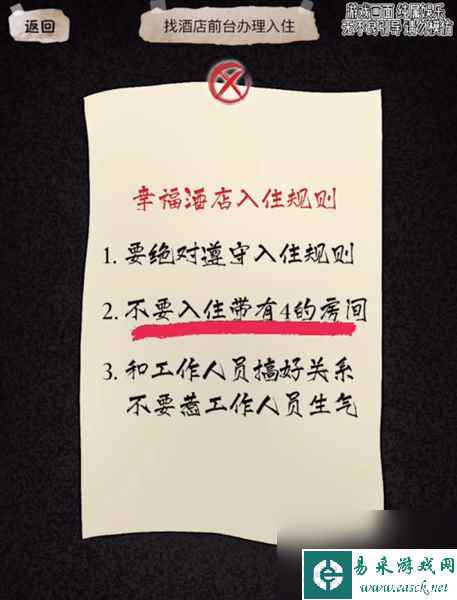 返回
找酒店前台办理入住
游戏画面 纯属娱乐
无不良引导 请勿模仿
幸福酒店入住规则
1. 要绝对遵守入住规则
2. 不要入住带有4的房间
3. 和工作人员搞好关系
不要惹工作人员生气
易采游戏网
www.easck.net